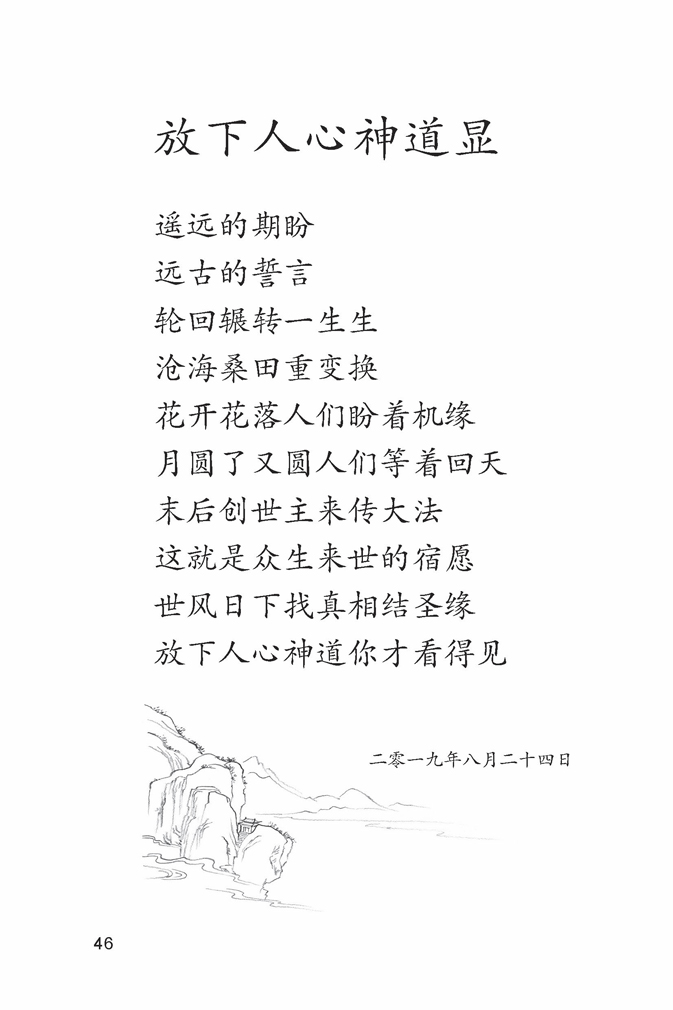 放下人心神道显
遥远的期盼
远古的誓言
轮回辗转一生生
沧海桑田重变换
花开花落人们盼着机缘
月圆了又圆人们等着回天
末后创世主来传大法
这就是众生来世的宿愿
世风日下找真相结圣缘
放下人心神道你才看得见
二零一九年八月二十四日
46